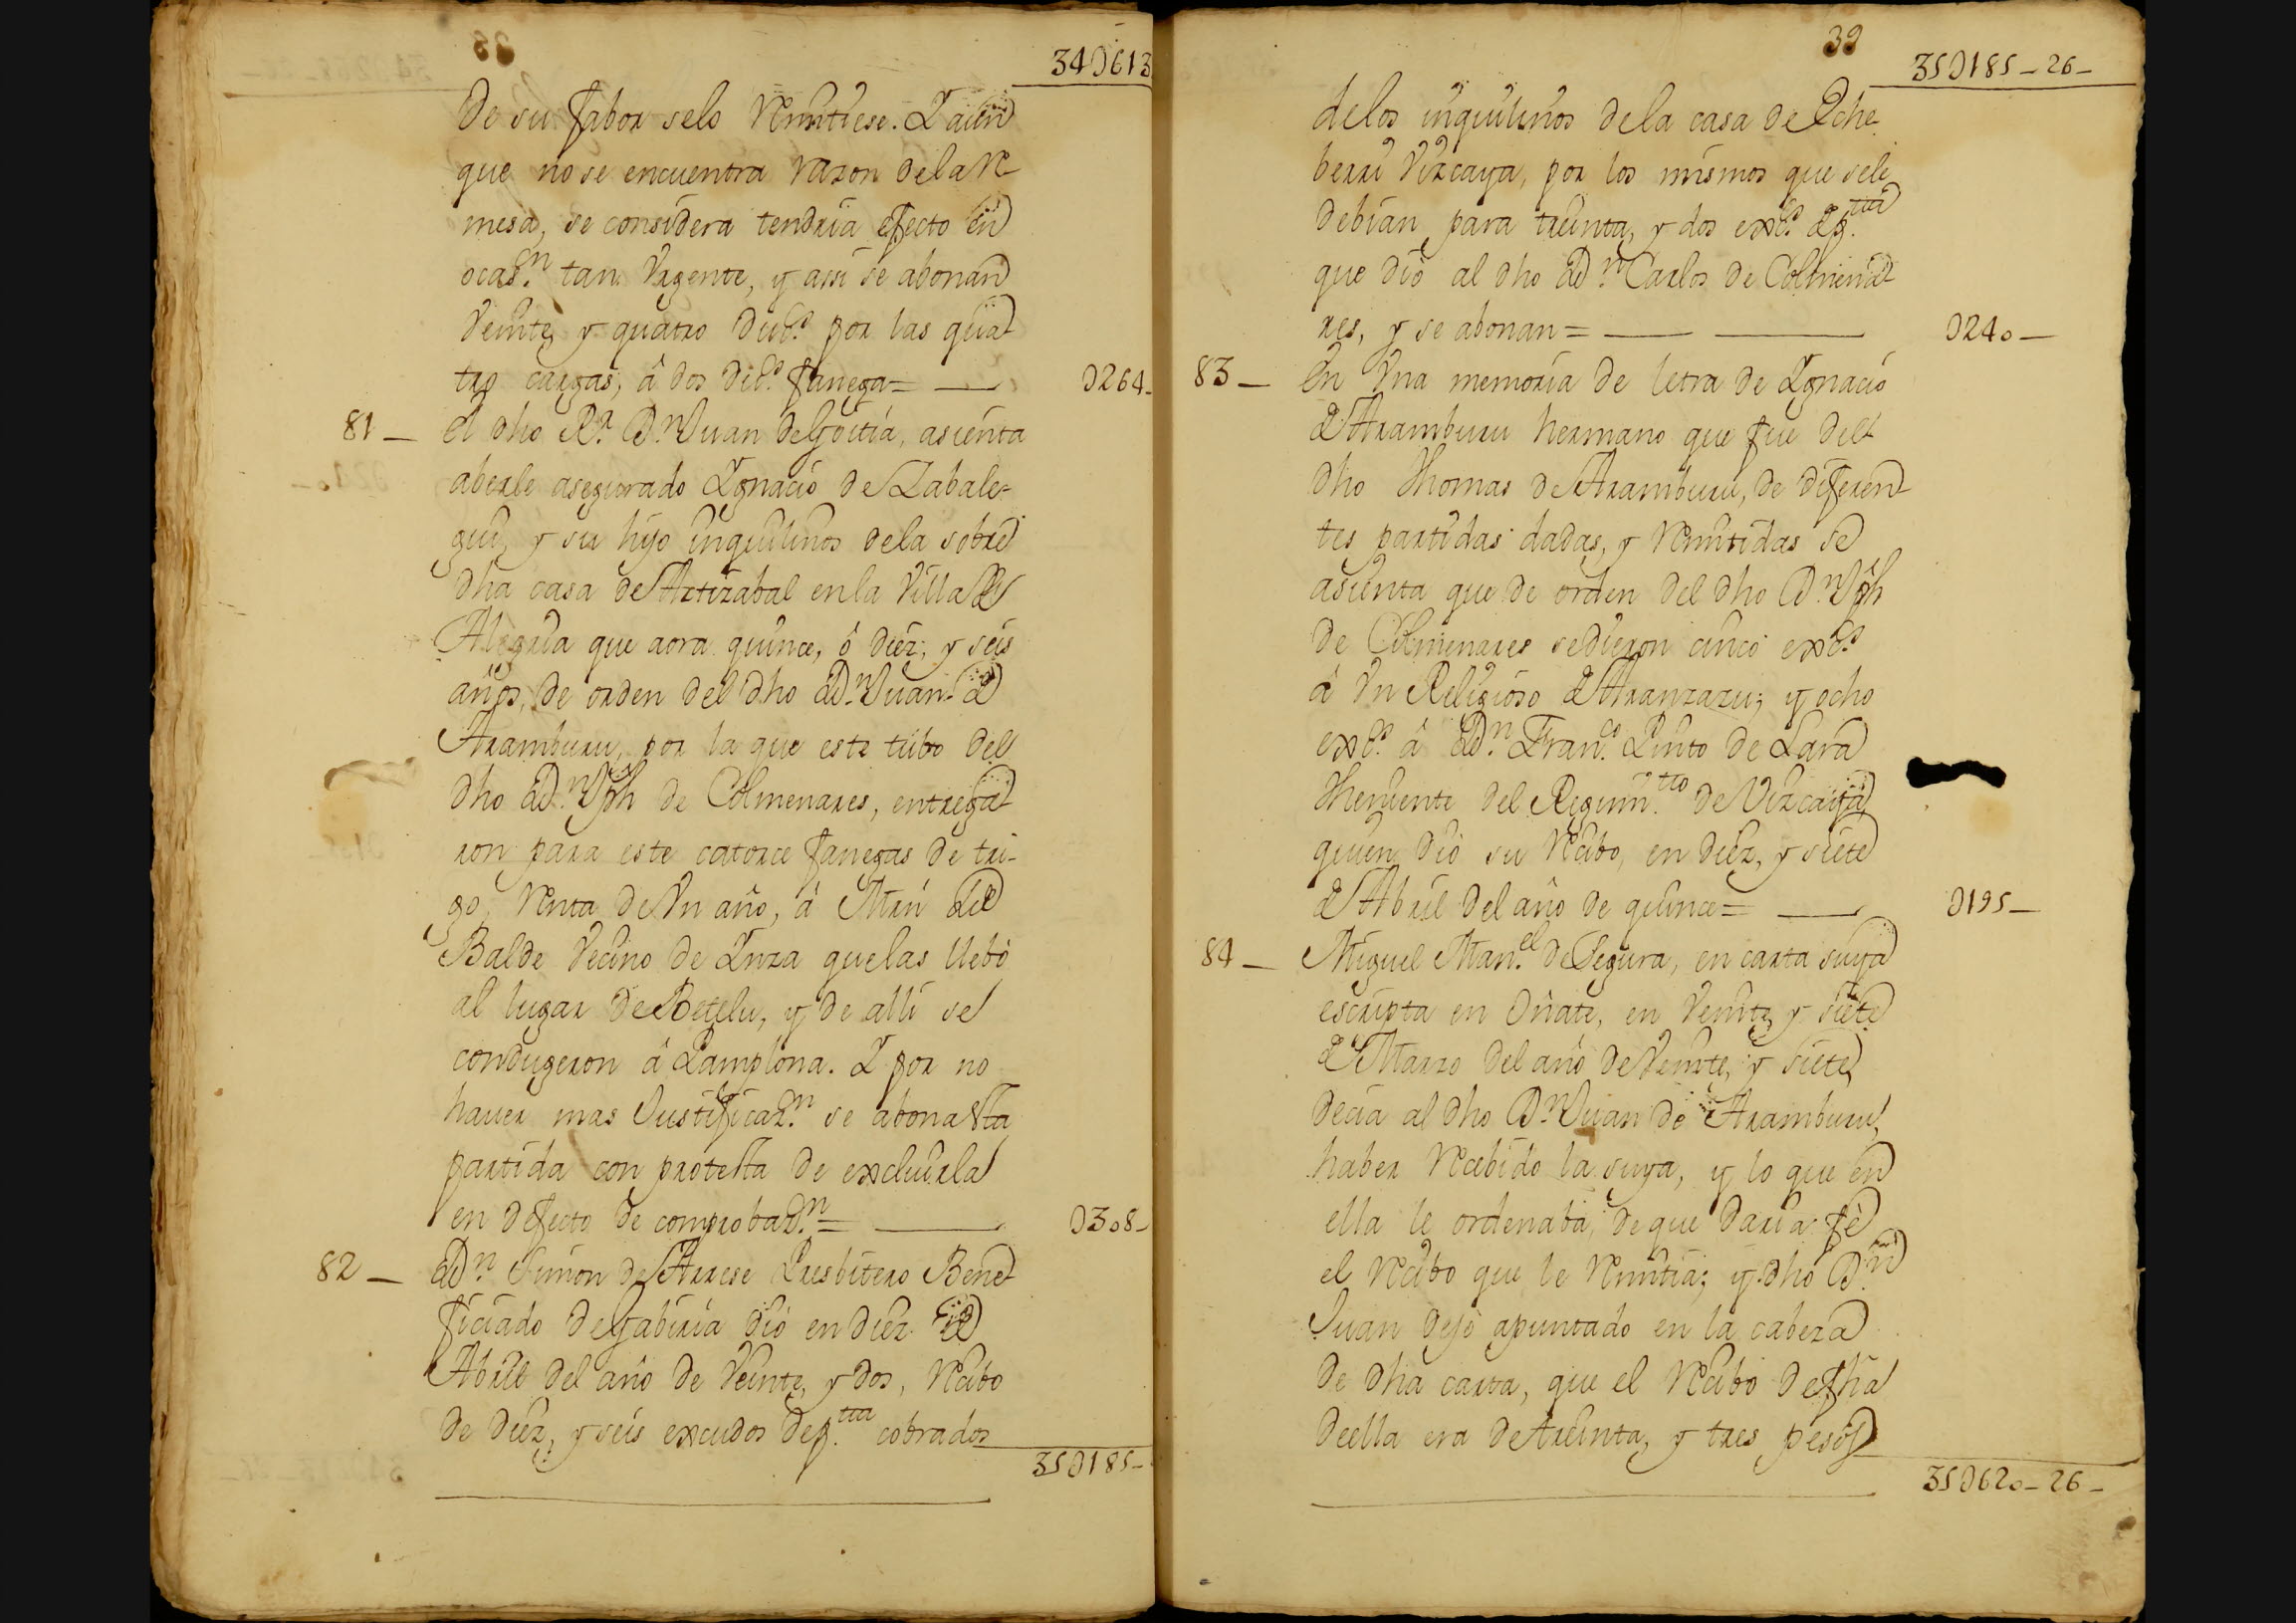 34D613
De su fabor selo Remitiese. Y aun
que no se encuentra razon de la Re-
mesa, se considera tendria efecto en
ocas.n tan Urgente, y assi se abonan
Veinte y quatro Duc.s por las qua-
tro cargas, â dos Duc.s fanega= —
D264-
81 — el dho R.n D.n Juan de Goitia, asienta
aberle asegurado Ygnacio de Zabale-
gui, y su hijo inquilinos dela sobre
dha casa de Artizabal en la Villa de
Alegria que aora quince, ô diez, y seis
años, de orden del dho D.n Juan de
Aramburu, por la que este tubo del
dho D.n Jph de Colmenares, entrega-
ron para este catorce fanegas de tri-
go, Renta de Vn año, â Mrn de
Balde Vecino de Inza que las llebô
al lugar de Betelu, y de alli se
condugeron â Pamplona. Y por no
hauer mas Justificaz.n se abona esta
partida con protesta de excluirla
en defecto de comprobaz.n= —
D308-
82 — D.n Simon de Arrese Presbitero Bene-
ficiado de Gabiria diô en diez de
Abril del año de Veinte, y dos, Recibo
de diez, y seis excudos de p.ta cobrados
35D185-
39
35D185-26-
delos inquilinos dela casa de Eche
berri Vizcaya, por los mismos que sele
debian para treinta, y dos exc.s de p.ta
que diô al dho D.n Carlos de Colmena-
res, y se abonan= — —
D240—
83 — En Vna memoria de letra de Ygnacio
de Aramburu hermano que fue del
dho Thomas de Aramburu, de diferen-
tes partidas dadas, y Remitidas se
asienta que de orden del dho D.n Jph
de Colmenares sedieron cinco exc.s
â Vn Religioso de Aranzazu; y ocho
exc.s â D.n Fran.co Pinto de Lara
Theniente del Regim.to de Vizcaya
quien diô su Recibo, en diez, y siete
de Abril del año de quince= —
D195—
84 — Miguel Man.el de Segura, en carta suya
escripta en Oñate, en Veinte, y siete
de Marzo del año de Veinte, y siete,
decia al dho D.n Juan de Aramburu,
haber Recibido la suya, y lo que en
ella le ordenaba, de que daria fê
el Recibo que le Remitia; y dho D.n
Juan dejô apuntado en la cabeza
de dha carta, que el Recibo de fha
deella era de treinta, y tres pesos
35D620-26-